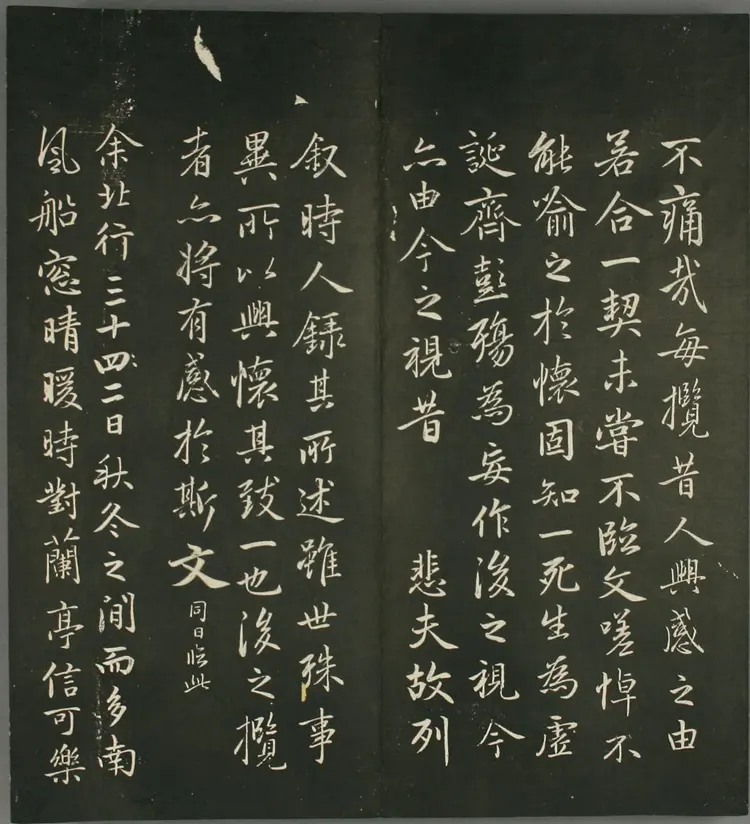 不痛哉每攬昔人興感之由
若合一契未嘗不臨文嗟悼不
能喻之於懷固知一死生為虛
誕齊彭殤為妄作後之視今
亦由今之視昔 悲夫故列
叙時人録其所述雖世殊事
異所以興懷其致一也後之攬
者亦將有感於斯文 同日臨此
余北行三十四二日秋冬之間而多南
風船窓晴暖時對蘭亭信可樂